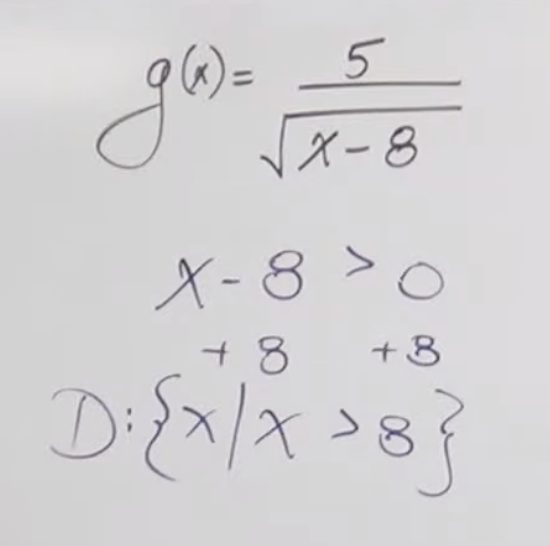 g(x) = 5 / √(x-8)
x - 8 > 0
+ 8 + 8
D: {x / x > 8}